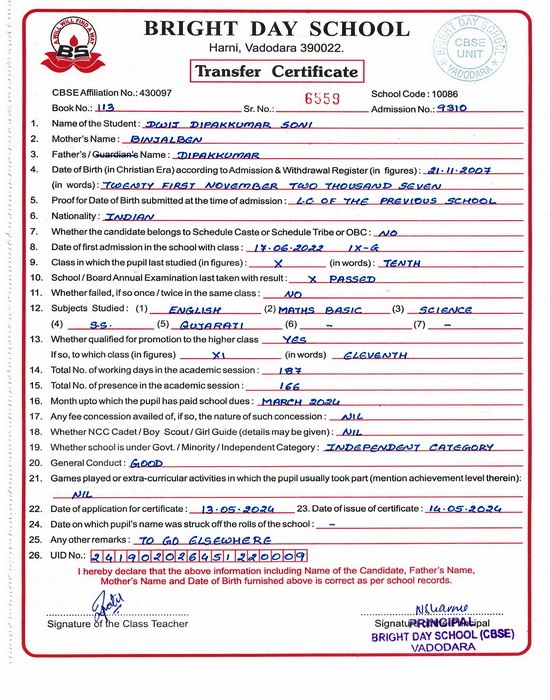 A WILL WILL FIND A WAY
BS
BRIGHT DAY SCHOOL
Harni, Vadodara 390022.
Transfer Certificate
BRIGHT DAY SCHOOL
CBSE UNIT
VADODARA
CBSE Affiliation No.: 430097 School Code : 10086
Book No.: 113 Sr. No.: 6559 Admission No.: 9310
1. Name of the Student : DWIJ DIPAKKUMAR SONI
2. Mother's Name : BINJALBEN
3. Father's / Guardian's Name : DIPAKKUMAR
4. Date of Birth (in Christian Era) according to Admission & Withdrawal Register (in figures) : 21.11.2007
(in words) : TWENTY FIRST NOVEMBER TWO THOUSAND SEVEN
5. Proof for Date of Birth submitted at the time of admission : L.C OF THE PREVIOUS SCHOOL
6. Nationality : INDIAN
7. Whether the candidate belongs to Schedule Caste or Schedule Tribe or OBC : NO
8. Date of first admission in the school with class : 17.06.2022 IX-G
9. Class in which the pupil last studied (in figures) : X (in words) : TENTH
10. School / Board Annual Examination last taken with result : X PASSED
11. Whether failed, if so once / twice in the same class : NO
12. Subjects Studied : (1) ENGLISH (2) MATHS BASIC (3) SCIENCE
(4) S.S. (5) GUJARATI (6) - (7) -
13. Whether qualified for promotion to the higher class YES
If so, to which class (in figures) XI (in words) ELEVENTH
14. Total No. of working days in the academic session : 187
15. Total No. of presence in the academic session : 166
16. Month upto which the pupil has paid school dues : MARCH 2024
17. Any fee concession availed of, if so, the nature of such concession : NIL
18. Whether NCC Cadet / Boy Scout / Girl Guide (details may be given) : NIL
19. Whether school is under Govt. / Minority / Independent Category : INDEPENDENT CATEGORY
20. General Conduct : GOOD
21. Games played or extra-curricular activities in which the pupil usually took part (mention achievement level therein):
NIL
22. Date of application for certificate : 13.05.2024 23. Date of issue of certificate : 14.05.2024
24. Date on which pupil's name was struck off the rolls of the school : -
25. Any other remarks : TO GO ELSEWHERE
26. UID No.: 241902026451220009
I hereby declare that the above information including Name of the Candidate, Father's Name,
Mother's Name and Date of Birth furnished above is correct as per school records.
Signature of the Class Teacher Signature of Principal
PRINCIPAL
BRIGHT DAY SCHOOL (CBSE)
VADODARA